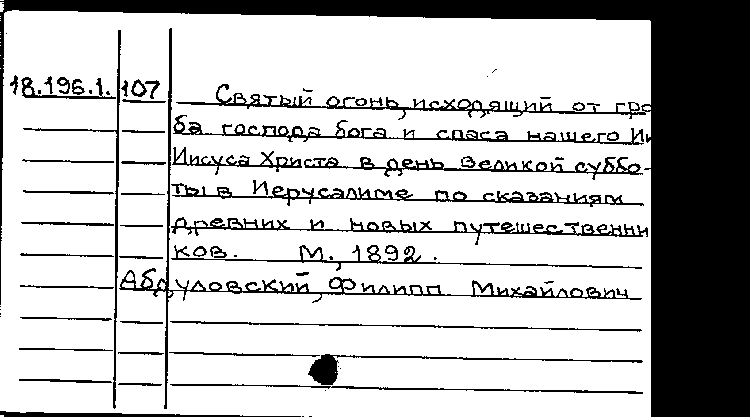 18.196.1. 107 Святый огонь, исходящий от гро
ба господа бога и спаса нашего Ии
Иисуса Христа в день Великой суббо-
ты в Иерусалиме по сказаниям
древних и новых путешественни
ков. М., 1892.
Абдуловский, Филипп Михайлович